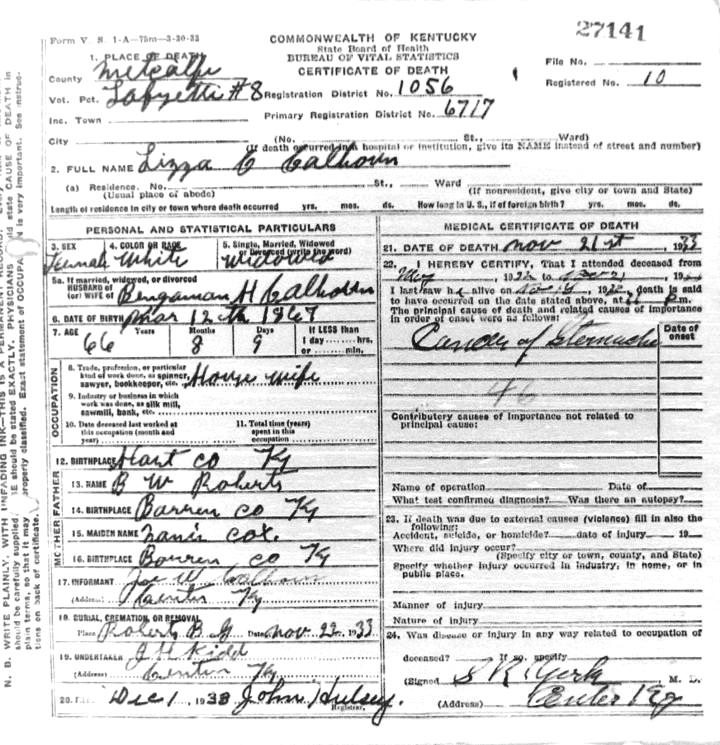 27141
Form V. S. 1-A—75m—3-30-33
COMMONWEALTH OF KENTUCKY
State Board of Health
BUREAU OF VITAL STATISTICS
CERTIFICATE OF DEATH
1. PLACE OF DEATH
County Metcalfe
File No.
Registered No. 10
Vot. Pct. Lafyetti #8 Registration District No. 1056
Inc. Town
Primary Registration District No. 6717
City (No. St., Ward)
(If death occurred in a hospital or institution, give its NAME instead of street and number)
2. FULL NAME Lizza C Calhoun
(a) Residence. No. St., Ward
(Usual place of abode) (If nonresident, give city or town and State)
Length of residence in city or town where death occurred yrs. mos. ds. How long in U. S., if of foreign birth? yrs. mos. ds.
PERSONAL AND STATISTICAL PARTICULARS
3. SEX 4. COLOR OR RACE 5. Single, Married, Widowed or Divorced (write the word)
White Widowed
5a. If married, widowed, or divorced
HUSBAND of
(or) WIFE of Bengaman H Calhoun
6. DATE OF BIRTH Mar 12th 1867
7. AGE Years Months Days If LESS than
66 8 9 1 day hrs.
or min.
OCCUPATION
8. Trade, profession, or particular
kind of work done, as spinner,
sawyer, bookkeeper, etc. House wife
9. Industry or business in which
work was done, as silk mill,
sawmill, bank, etc.
10. Date deceased last worked at
this occupation (month and
year)
11. Total time (years)
spent in this
occupation
12. BIRTHPLACE Hart co Ky
FATHER
13. NAME B W Roberts
14. BIRTHPLACE Barren co Ky
MOTHER
15. MAIDEN NAME cox.
16. BIRTHPLACE Barren co Ky
17. INFORMANT Joe W Calhoun
(Address) Center Ky
18. BURIAL, CREMATION, OR REMOVAL
Place Roberts B. G. Date Nov 22, 1933
19. UNDERTAKER J H Kidd
(Address) Center Ky
20. Dec 1 1933 John Hulsey.
Registrar.
MEDICAL CERTIFICATE OF DEATH
21. DATE OF DEATH Nov 21st, 1933
22. I HEREBY CERTIFY, That I attended deceased from
I last saw h alive on death is said
to have occurred on the date stated above, at m.
The principal cause of death and related causes of importance
in order of onset were as follows:
Date of
onset
Cancer of Stomach
46
Contributory causes of importance not related to
principal cause:
Name of operation Date of
What test confirmed diagnosis? Was there an autopsy?
23. If death was due to external causes (violence) fill in also the
following:
Accident, suicide, or homicide? date of injury 19
Where did injury occur?
(Specify city or town, county, and State)
Specify whether injury occurred in industry, in home, or in
public place.
Manner of injury
Nature of injury
24. Was disease or injury in any way related to occupation of
deceased? If so, specify
(Signed S R. York M. D.
(Address) Center Ky
N. B. WRITE PLAINLY, WITH UNFADING INK—THIS IS A PERMANENT RECORD.
should be carefully supplied. AGE should be stated EXACTLY. PHYSICIANS should state CAUSE OF DEATH in
plain terms, so that it may be properly classified. Exact statement of OCCUPATION is very important. See instruc-
tions on back of certificate.